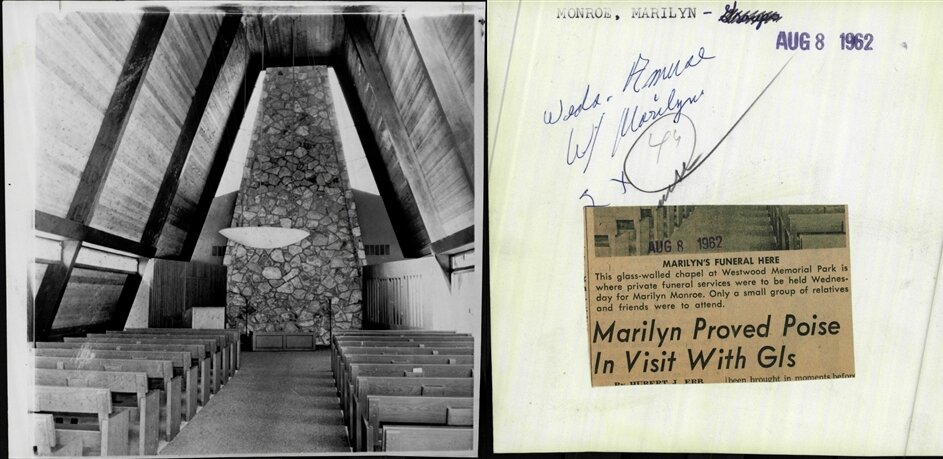 MONROE, MARILYN -
AUG 8 1962
Weds.
W/ Marilyn
AUG 8 1962
MARILYN'S FUNERAL HERE
This glass-walled chapel at Westwood Memorial Park is
where private funeral services were to be held Wednes-
day for Marilyn Monroe. Only a small group of relatives
and friends were to attend.
Marilyn Proved Poise
In Visit With GIs
By HUBERT J. ERB
been brought in moments before